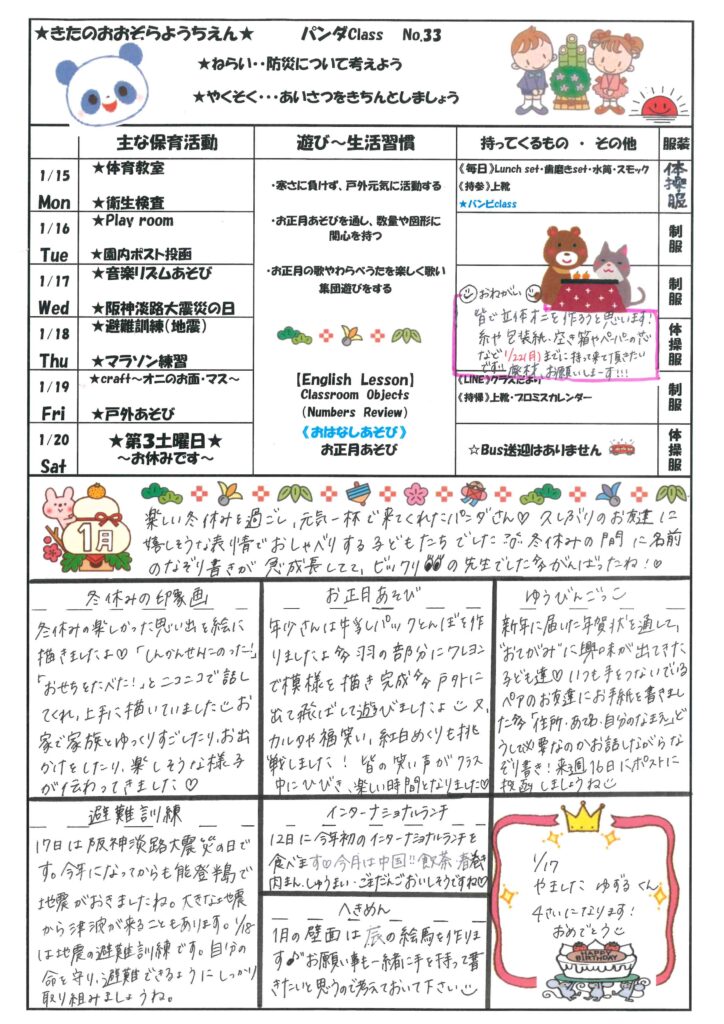 ★きたのおおぞらようちえん★ パンダClass No.33
★ねらい・・防災について考えよう
★やくそく・・・あいさつをきちんとしましょう
主な保育活動 遊び～生活習慣 持ってくるもの ・ その他 服装
1/15 Mon
★体育教室
★衛生検査
1/16 Tue
★Play room
★園内ポスト投函
1/17 Wed
★音楽リズムあそび
★阪神淡路大震災の日
1/18 Thu
★避難訓練(地震)
★マラソン練習
1/19 Fri
★craft～オニのお面・マス～
★戸外あそび
1/20 Sat
★第3土曜日★
～お休みです～
・寒さに負けず、戸外元気に活動する
・お正月あそびを通し、数量や図形に
関心を持つ
・お正月の歌やわらべうたを楽しく歌い
集団遊びをする
【English Lesson】
Classroom Objects
(Numbers Review)
《おはなしあそび》
お正月あそび
《毎日》Lunch set・歯磨きset・水筒・スモック
《持参》上靴
★バンビclass
おねがい
皆で立体オニを作ろうと思います!
糸や包装紙、空き箱やペーパーの芯
など1/22(月)までに持って来て頂きたい
です!! 廃材、お願いしまーす!!!
《LINE》クラスだより
《持帰》上靴・プロミスカレンダー
☆Bus送迎はありません
体操服
制服
制服
体操服
制服
体操服
1月
楽しい冬休みを過ごし、元気一杯で来てくれたパンダさん♡ 久しぶりのお友達に
嬉しそうな表情でおしゃべりする子どもたちでした 冬休みの間に名前
のなぞり書きが急成長してて、ビックリ の先生でした がんばったね!♡
冬休みの印象画
冬休みの楽しかった思い出を絵に
描きましたよ♡「しんかんせんにのった一!」
「おせちをたべた!」とニコニコで話し
てくれ、上手に描いていました お
家で家族とゆっくりすごしたり、お出
かけをしたり、楽しそうな様子
が伝わってきました♡
お正月あそび
年少さんは牛乳パックとんぼを作
りましたよ 羽の部分にクレヨン
で模様を描き完成 戸外に
出て飛ばして遊びましたよ 又、
カルタや福笑い、紅白めくりも挑
戦しました! 皆の笑い声がクラス
中にひびき、楽しい時間となりました♡
ゆうびんごっこ
新年に届いた年賀状を通して、
"おてがみ"に興味が出てきた
子ども達♡いつも手をつないでいる
ペアのお友達にお手紙を書きまし
た 「住所・あて名・自分のなまえ」ど
うして必要なのかお話しながらな
ぞり書き!来週16日にポストに
投函しましょうね
避難訓練
17日は阪神淡路大震災の日で
す。今年になってからも能登半島で
地震がおきましたね。大きな地震
から津波が来ることもあります。1/18
は地震の避難訓練です。自分の
命を守り、避難できるようにしっかり
取り組みましょうね。
インターナショナルランチ
12日に今年初のインターナショナルランチを
食べます♡今月は中国!!飲茶・春巻き
肉まん、しゅうまい・ごまだんごおいしそうですね♡
へきめん
1月の壁面は辰の絵馬を作りま
す♪お願い事も一緒に手を持って書
きたいと思うので考えておいて下さい
1/17
やました ゆずる くん
4さいになります!
おめでとう
HAPPY
BIRTHDAY